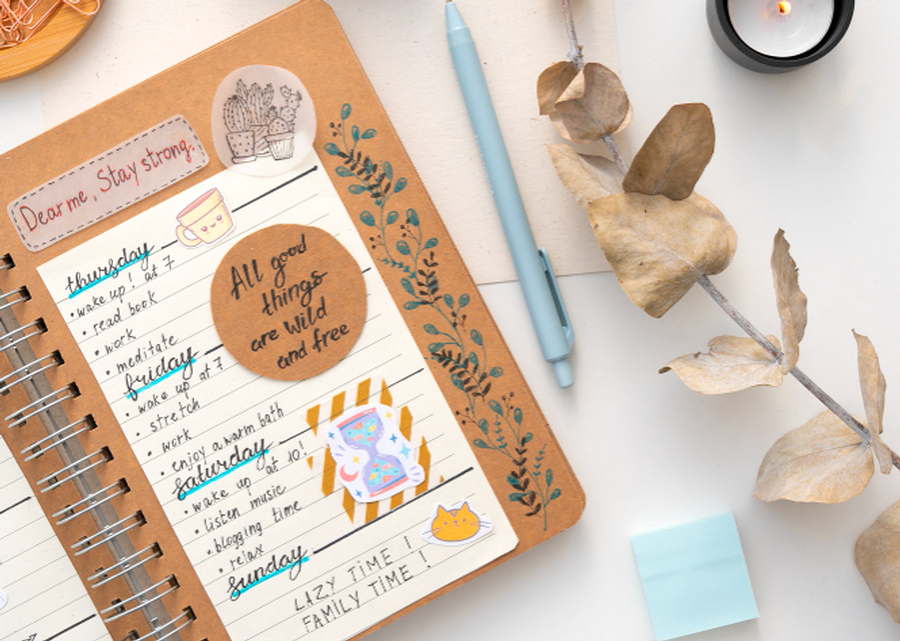 Dear me, Stay strong.
thursday
• wake up! at 7
• read book
• work
• meditate
All good
things
are wild
and free
friday
• wake up at 7
• stretch
• work
• enjoy a warm bath
saturday
• wake up at 10!
• listen music
• blogging time
• relax
sunday
LAZY TIME!
FAMILY TIME!